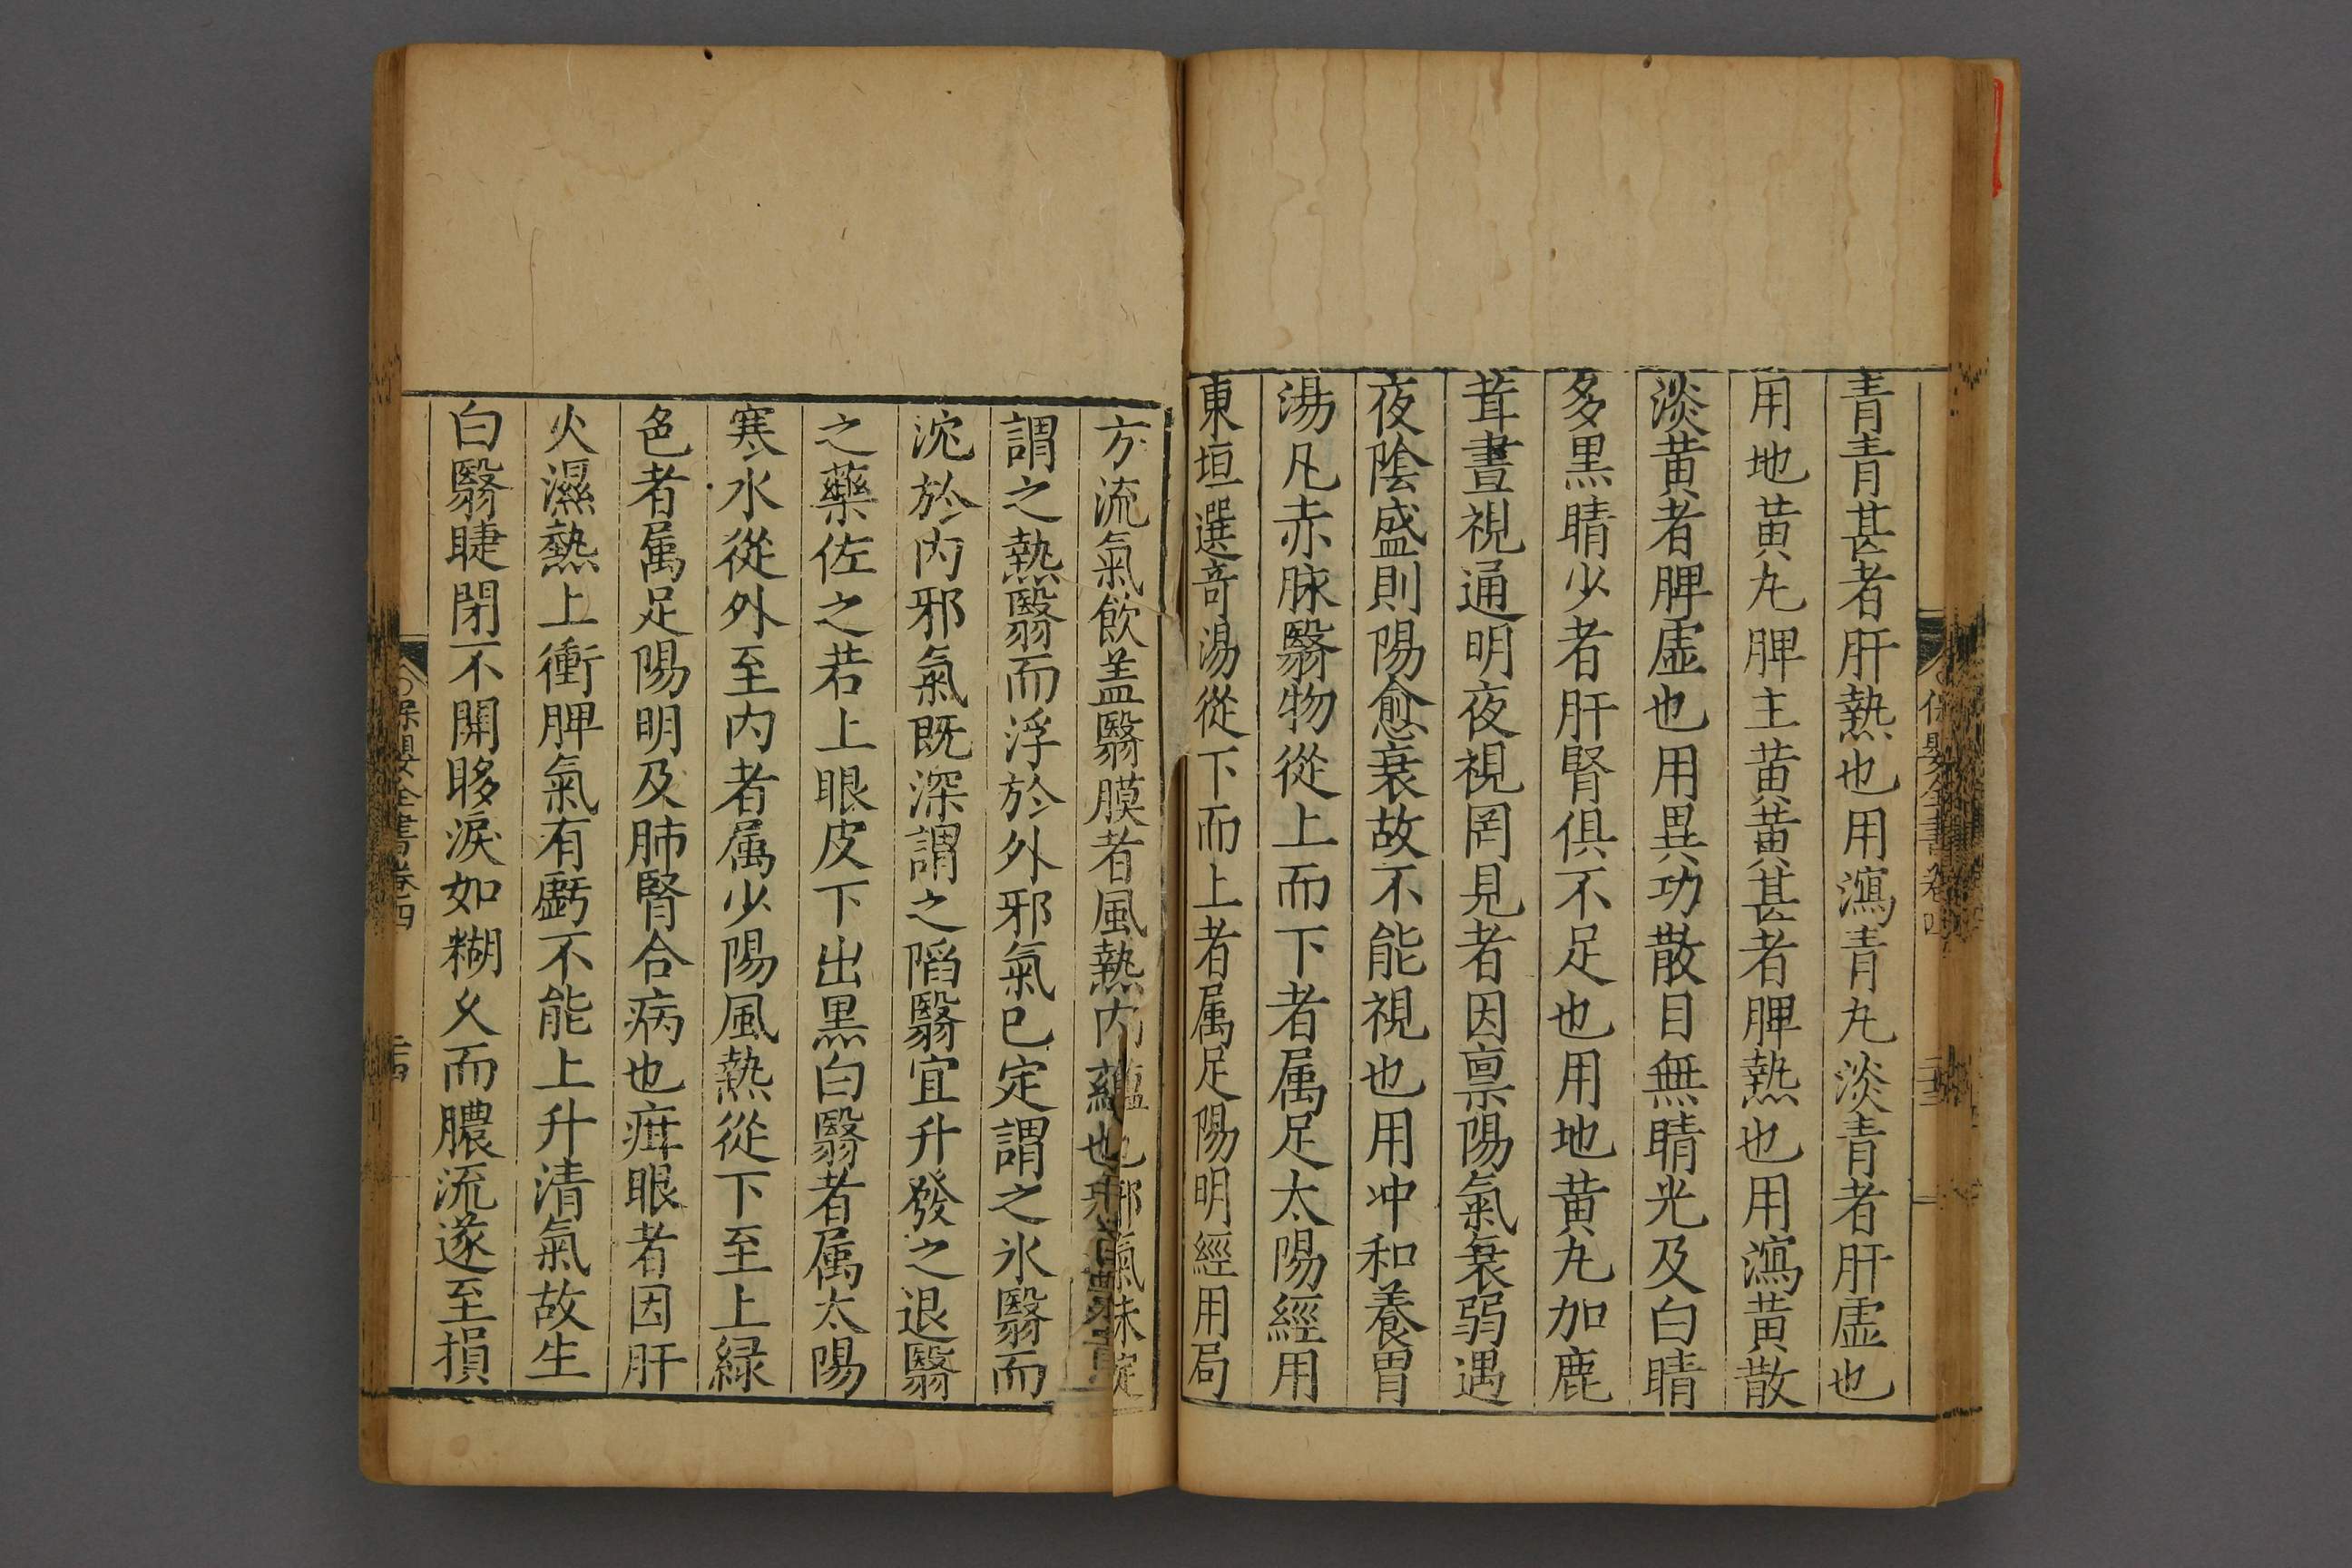 青青甚者肝熱也用瀉青丸淡青者肝虛也
用地黄丸脾主黄黄甚者脾熱也用瀉黄散
淡黄者脾虛也用異功散目無睛光及白睛
多黒睛少者肝腎俱不足也用地黄丸加鹿
茸晝視通明夜視罔見者因禀陽氣衰弱遇
夜陰盛則陽愈衰故不能視也用冲和養胃
湯凡赤脉翳物從上而下者属足太陽經用
東垣選竒湯從下而上者属足陽明經用局
方流氣飲盖翳膜者風熱内蘊也邪氣未定
謂之熱翳而浮於外邪氣已定謂之氷翳而
沈於内邪氣既深謂之陷翳宜升發之退翳
之藥佐之若上眼皮下出黒白翳者属太陽
寒水從外至内者属少陽風熱從下至上緑
色者属足陽明及肺腎合病也疳眼者因肝
火濕熱上衝脾氣有虧不能上升清氣故生
白翳睫閉不開眵淚如糊乆而膿流遂至損
保嬰全書卷四